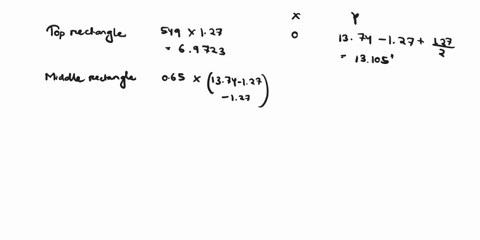 x y
Top rectangle 549 × 1.27 0 13.74 - 1.27 + 1.27/2
= 6.9723 = 13.105'
Middle rectangle 0.65 × (13.74-1.27
-1.27)